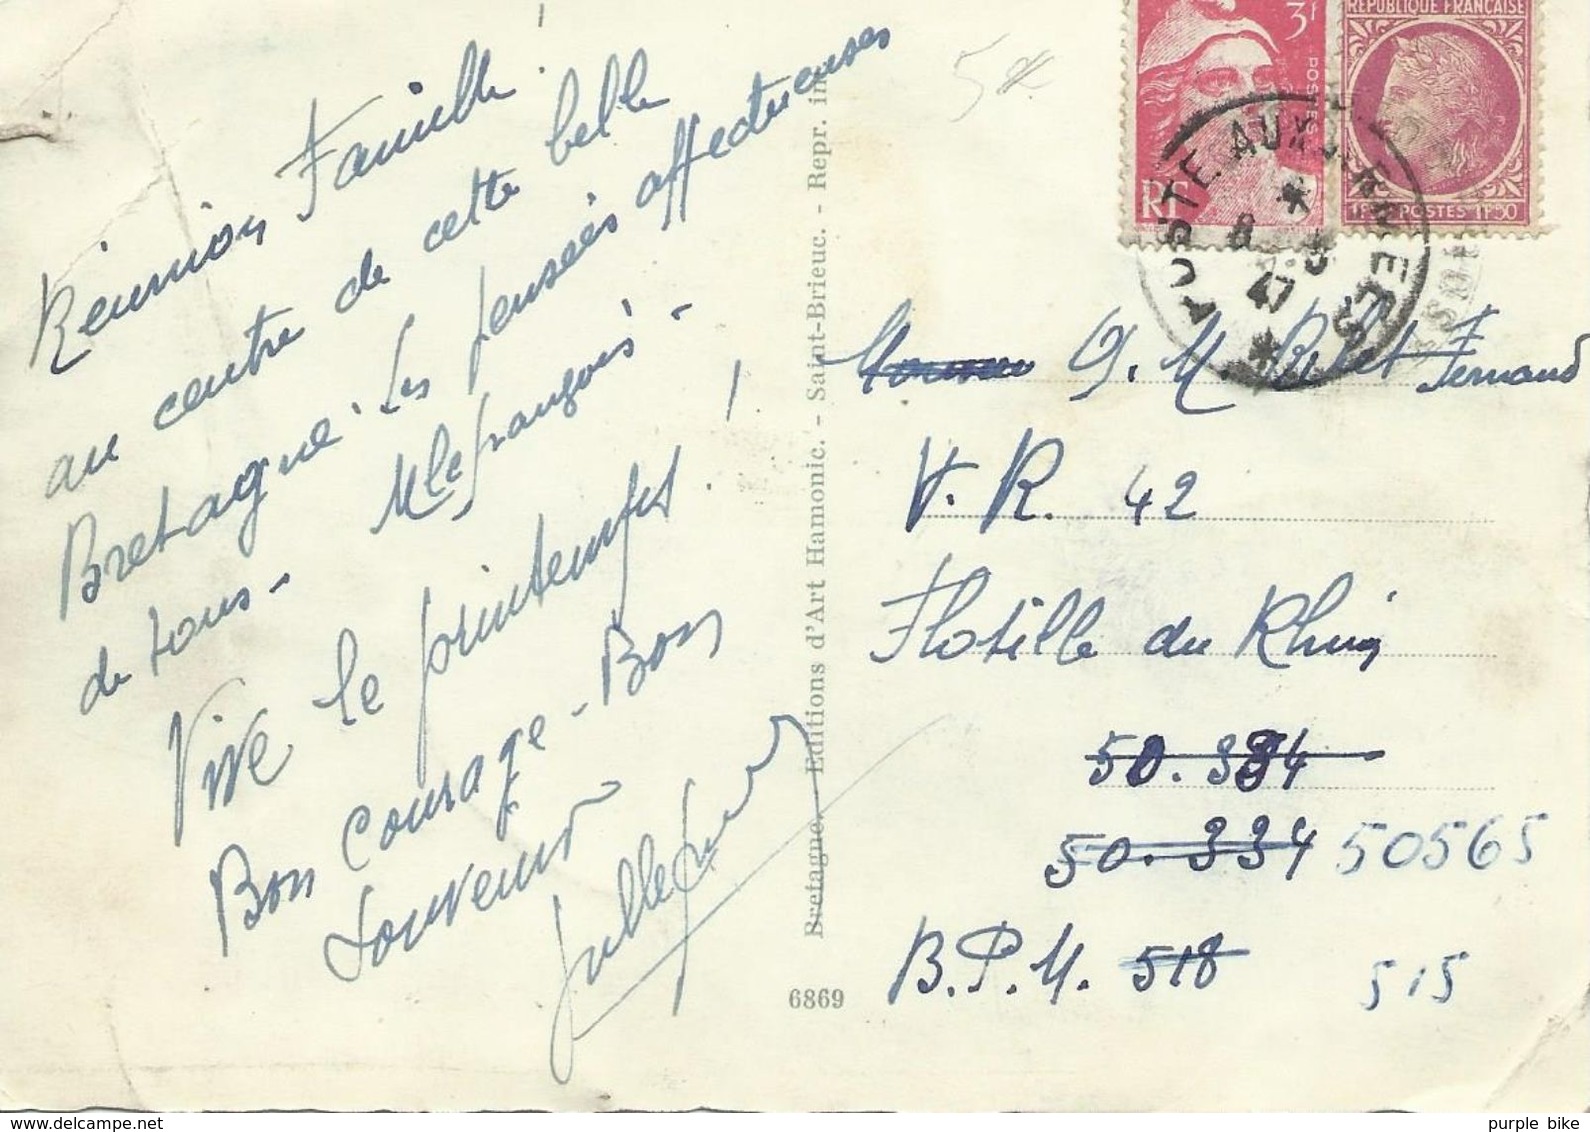 Réunion Famille !
au centre de cette belle
Bretagne. Les pensées affectueuses
de tous - Mlefrançois -
Vive le printemps !
Bon Courage - Bon
souvenir
5
3F
POSTES
RF
REPUBLIQUE FRANÇAISE
1F50 POSTES 1F50
POSTE AUX ARMEES
8
47
Bretagne. - Editions d'Art Hamonic. - Saint-Brieuc. - Repr. in
6869
Q. M. Fernand
V. R. 42
Flotille du Rhin
50.334
50.334 50565
B.P.M. 518 515
purple bike